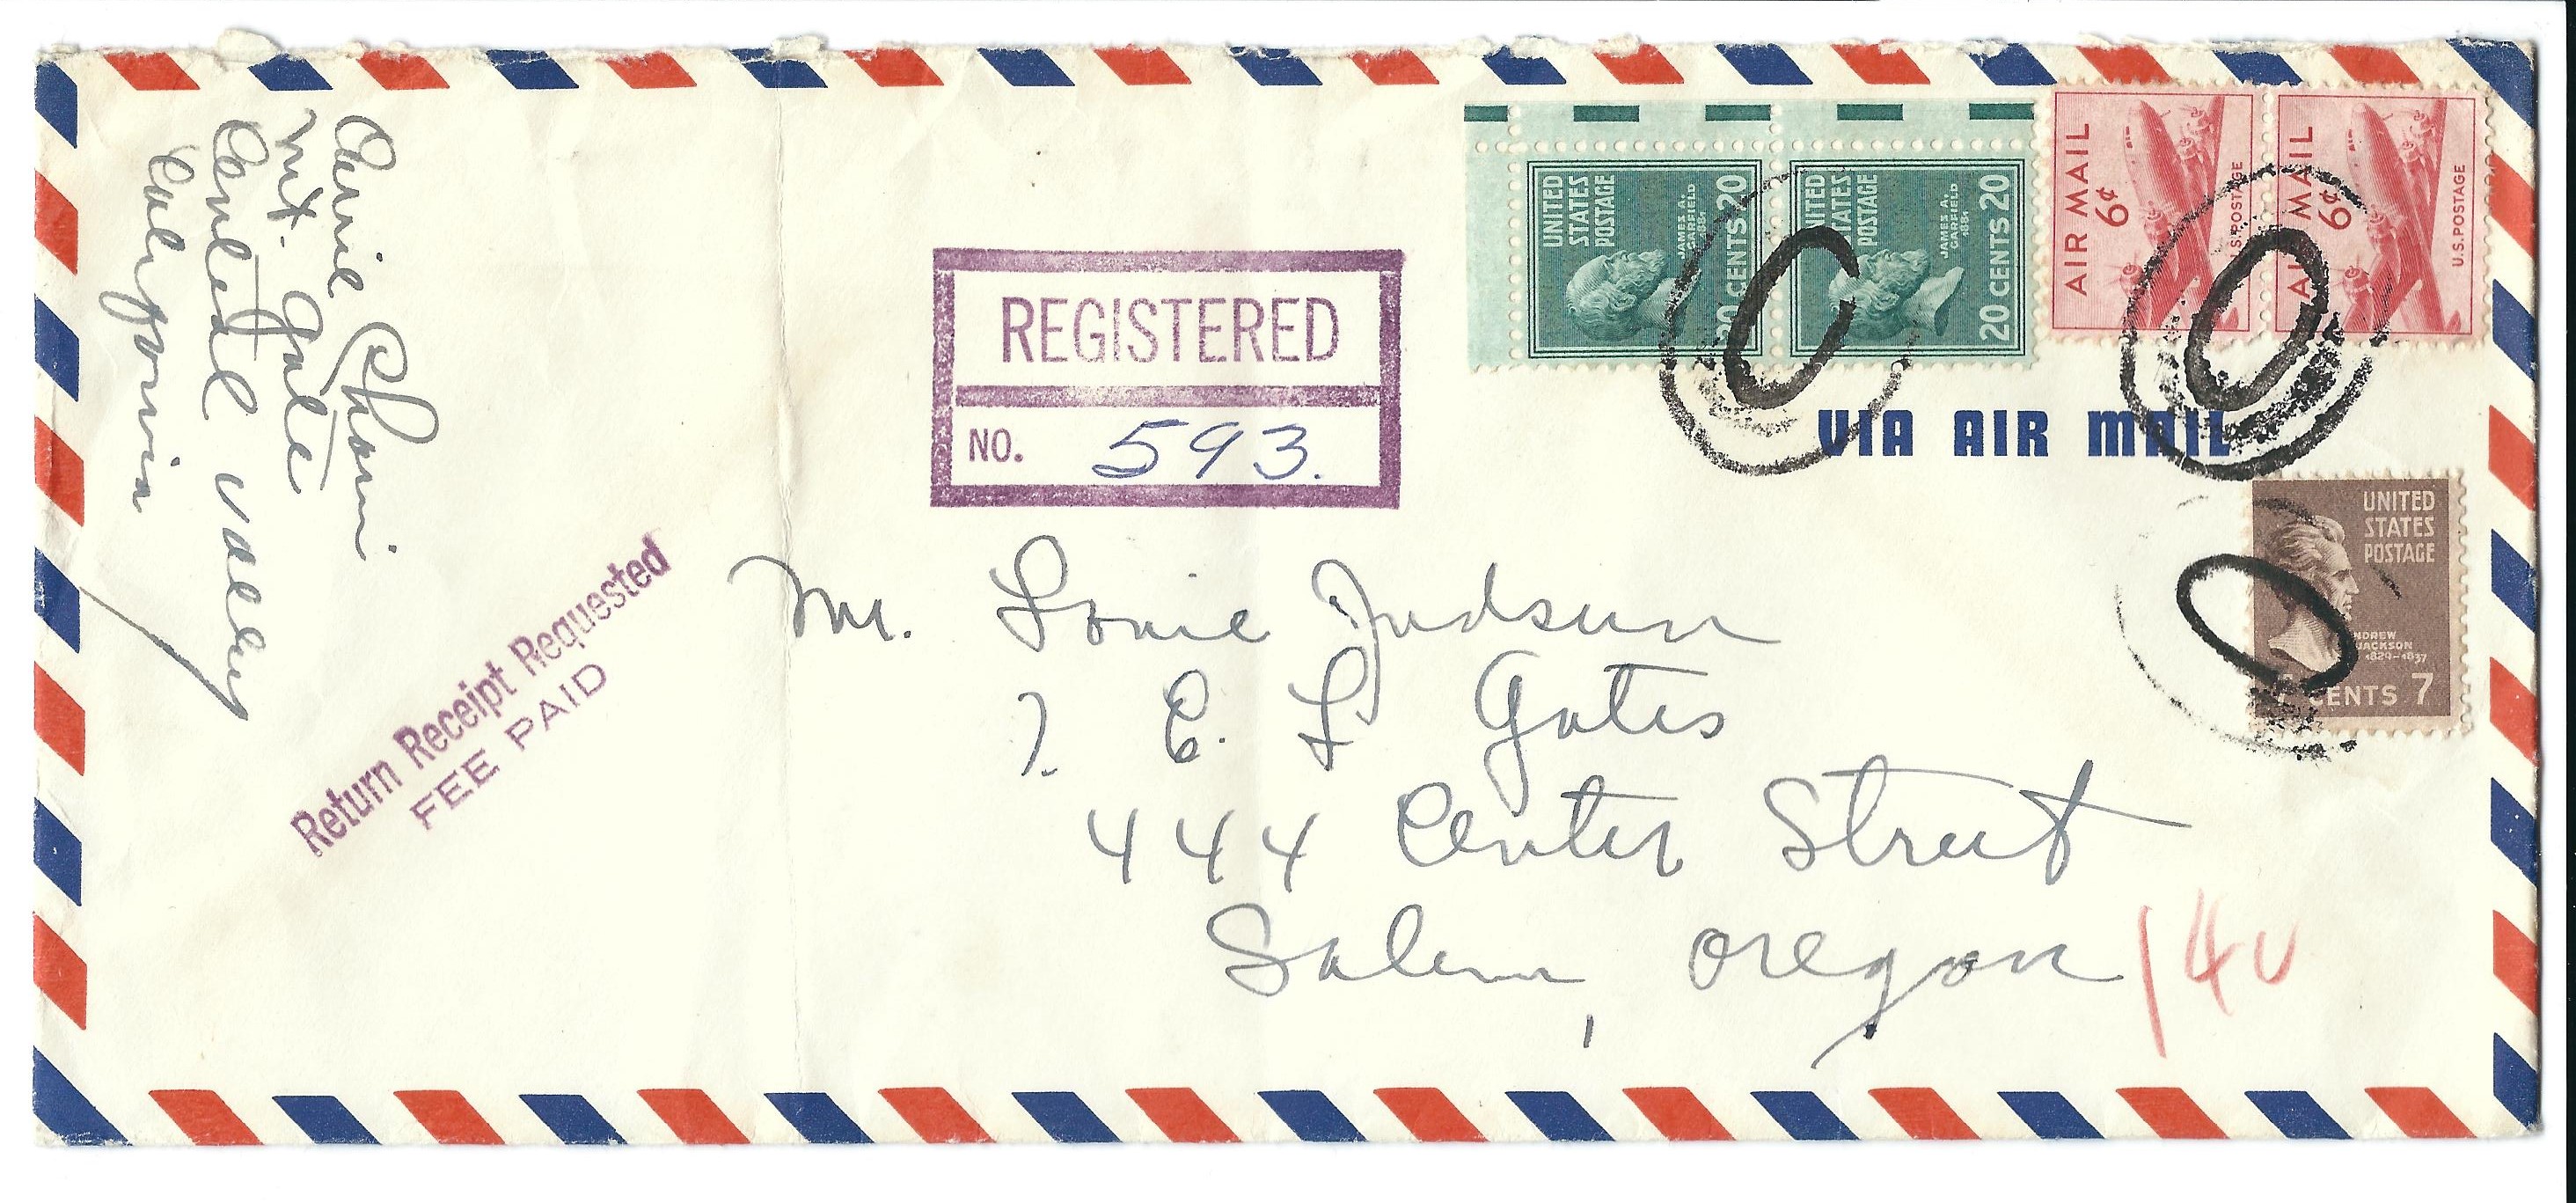 Mt. Gate
Central Valley
California
Return Receipt Requested
FEE PAID
REGISTERED
NO. 593.
UNITED
STATES
POSTAGE
JAMES A.
GARFIELD
1881
20 CENTS 20
UNITED
STATES
POSTAGE
JAMES A.
GARFIELD
1881
20 CENTS 20
AIR MAIL
6¢
U.S. POSTAGE
AIR MAIL
6¢
U.S. POSTAGE
VIA AIR MAIL
UNITED
STATES
POSTAGE
ANDREW
JACKSON
1829-1837
7 CENTS 7
Mr. Louie Judson
E. L Gates
444 Center Street
Salem, Oregon